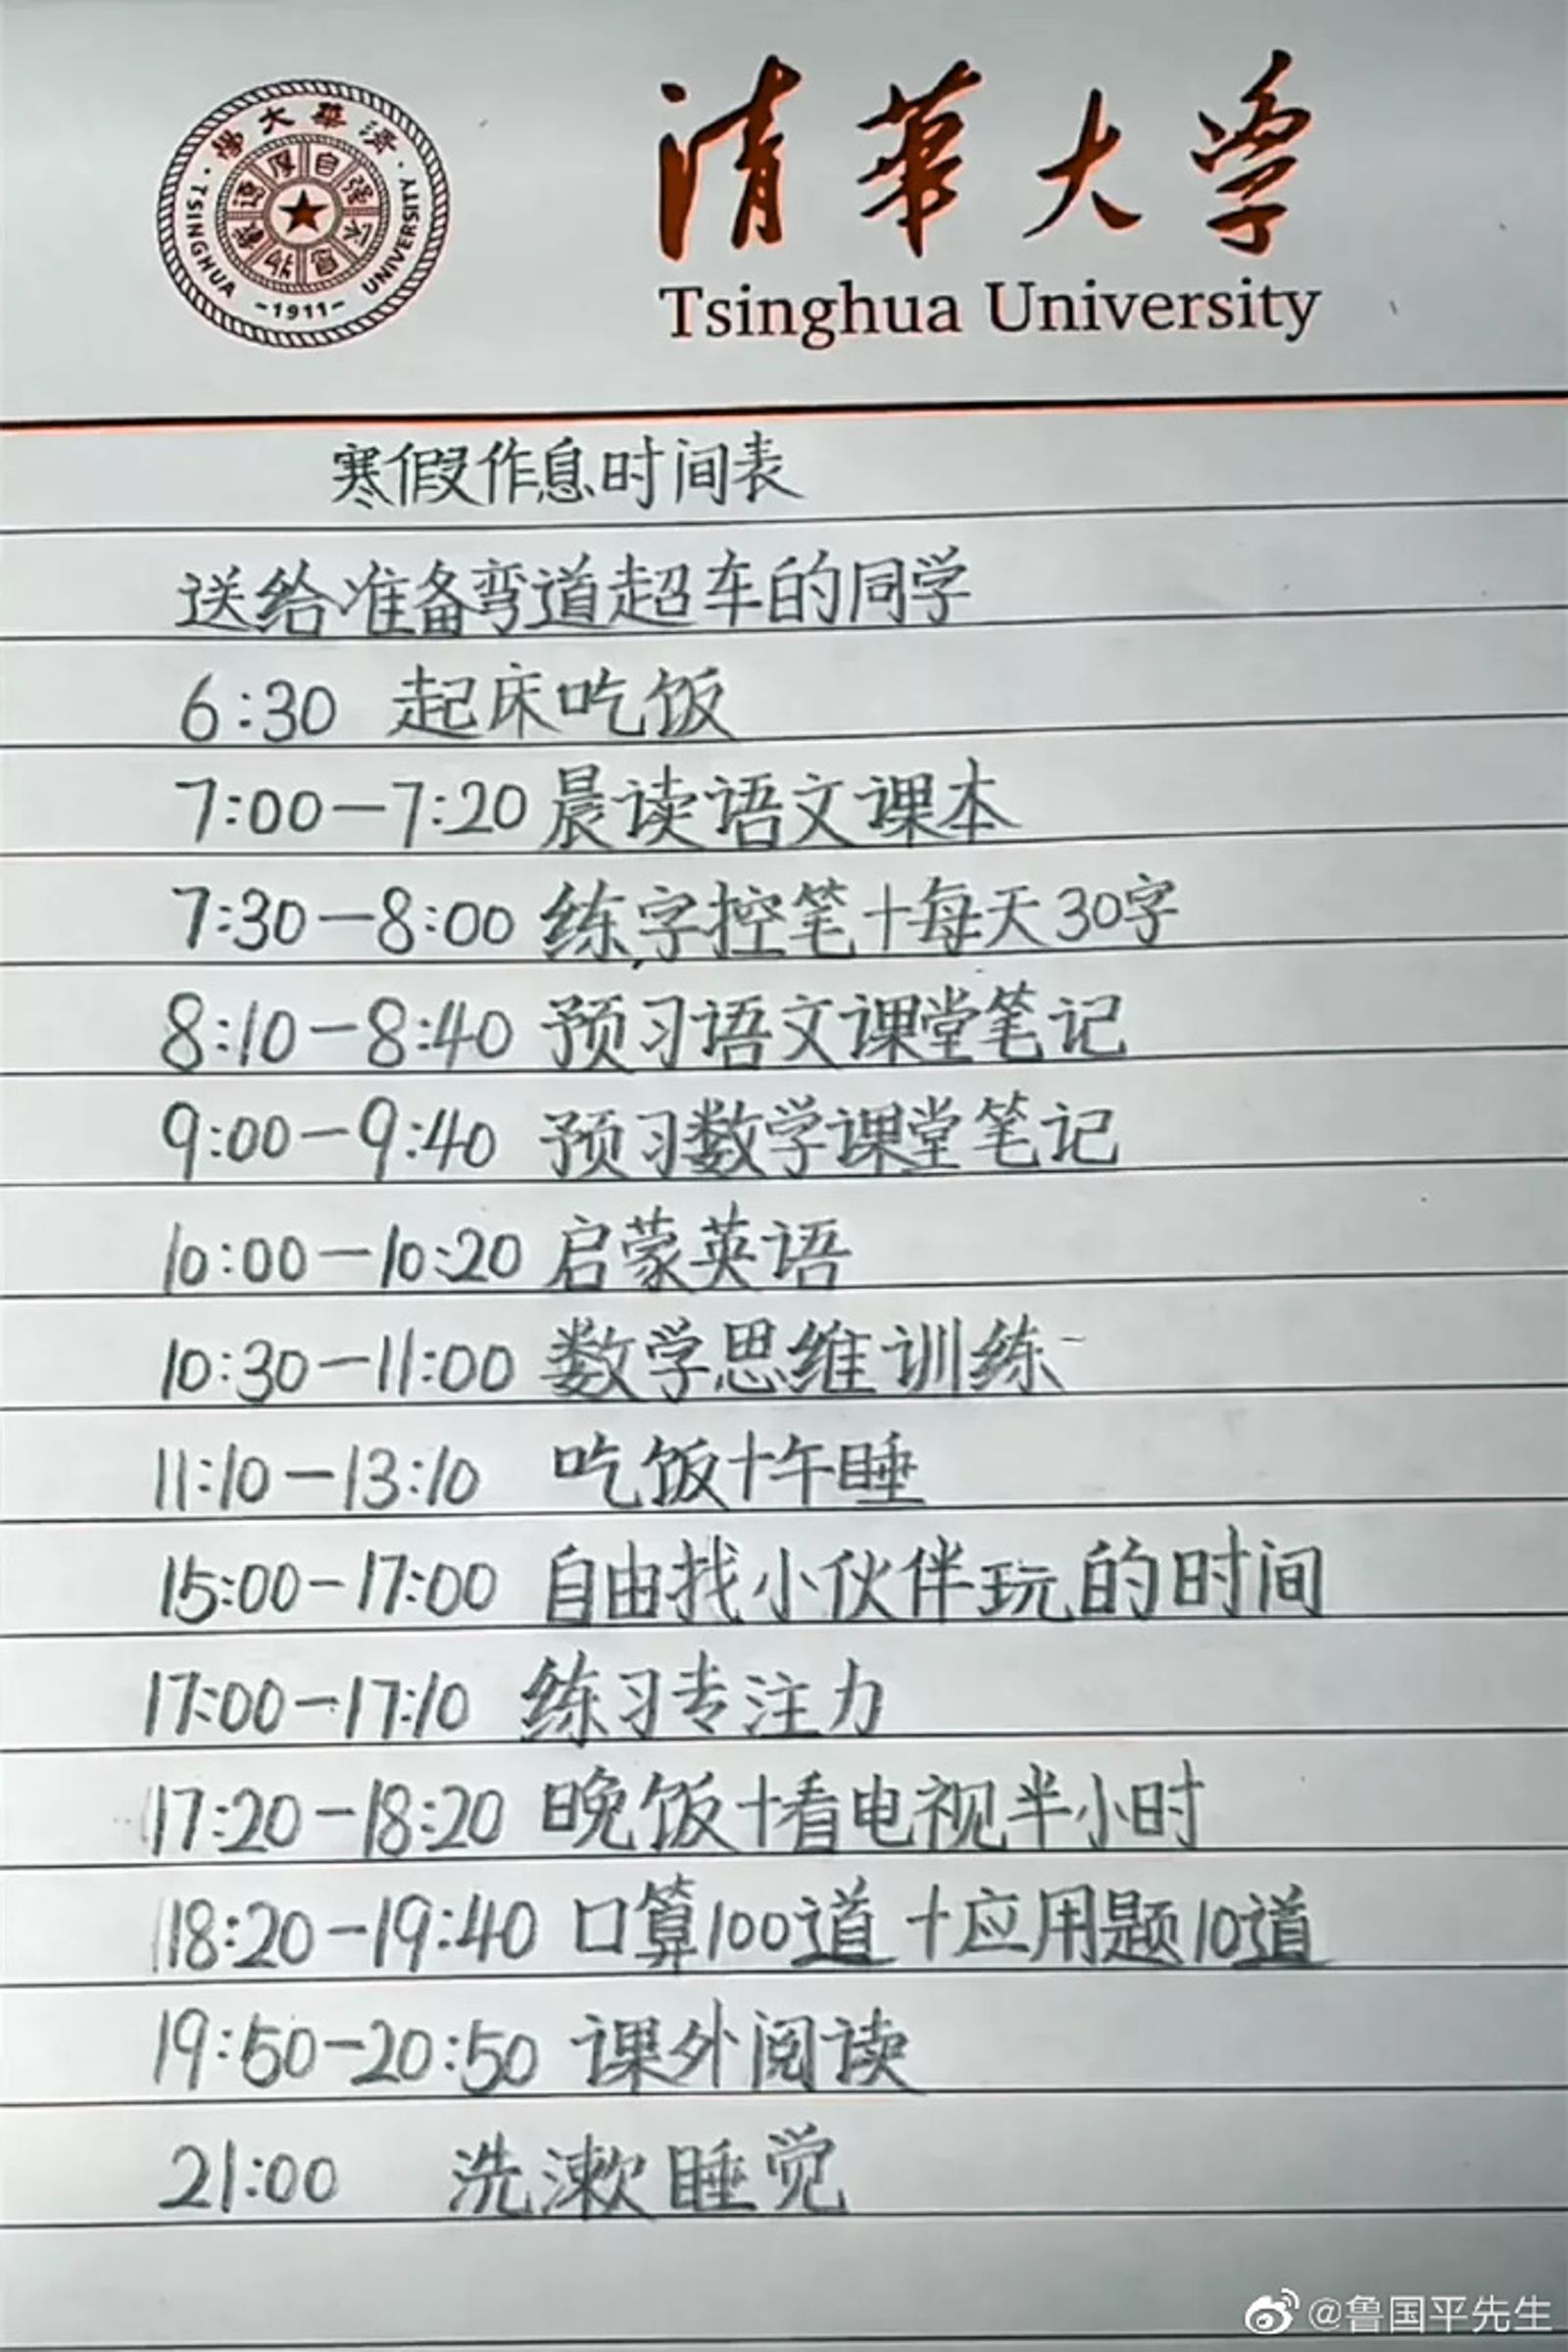 清華大学
Tsinghua University
清華大學
TSINGHUA UNIVERSITY
自强不息
厚德載物
-1911-
寒假作息时间表
送给准备弯道超车的同学
6:30 起床吃饭
7:00-7:20 晨读语文课本
7:30-8:00 练字控笔+每天30字
8:10-8:40 预习语文课堂笔记
9:00-9:40 预习数学课堂笔记
10:00-10:20 启蒙英语
10:30-11:00 数学思维训练
11:10-13:10 吃饭+午睡
15:00-17:00 自由找小伙伴玩的时间
17:00-17:10 练习专注力
17:20-18:20 晚饭+看电视半小时
18:20-19:40 口算100道+应用题10道
19:50-20:50 课外阅读
21:00 洗漱睡觉
@鲁国平先生